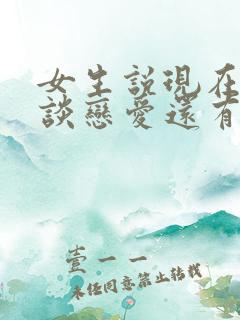 女生説現在
談戀愛還有
壹一一
未经同意禁止转载